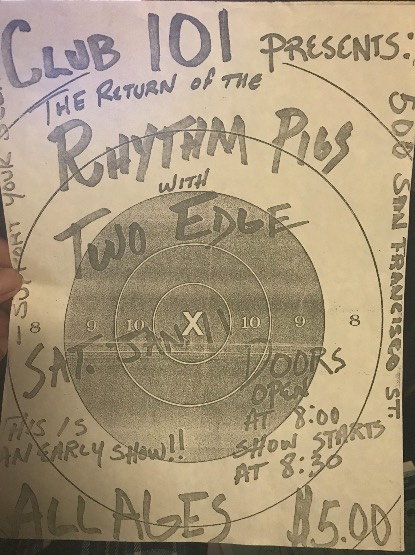 CLUB 101 PRESENTS:
THE RETURN OF THE
RHYTHM PIGS
WITH
TWO EDGE
8 9 10 X 10 9 8
SAT. JAN 11
DOORS
OPEN
AT 8:00
SHOW STARTS
AT 8:30
THIS IS
AN EARLY SHOW!!
ALL AGES $5.00
500 SAN FRANCISCO ST.
- SUPPORT YOUR